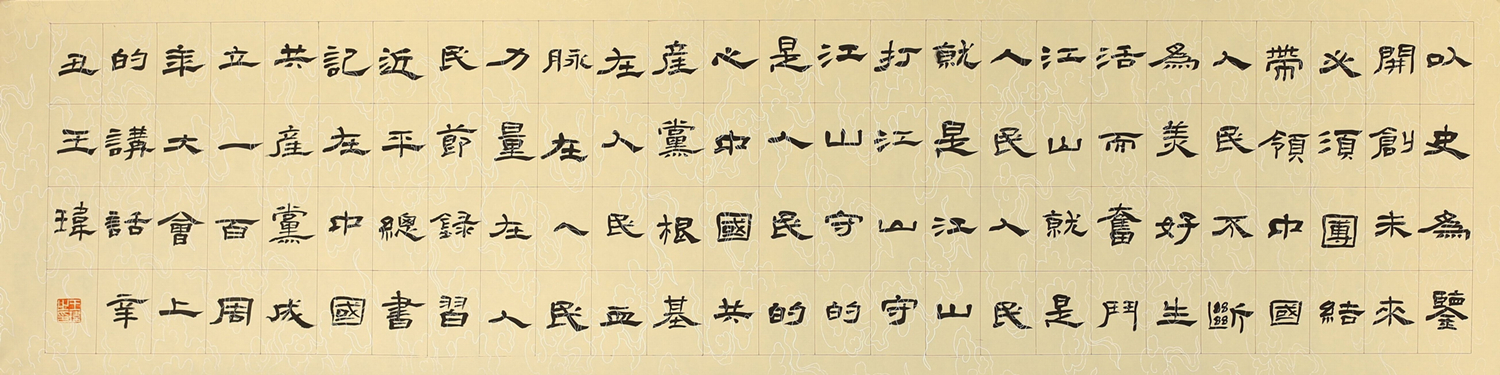 以史為鑒
開創未來
必須團結
帶領中國
人民不斷
為美好生
活而奮鬥
江山就是
人民人民
就是江山
打江山守
江山守的
是人民的
心中國共
產黨根基
在人民血
脉在人民
力量在人
民節錄習
近平總書
記在中國
共產黨成
立一百周
年大會上
的講話辛
丑王瑋